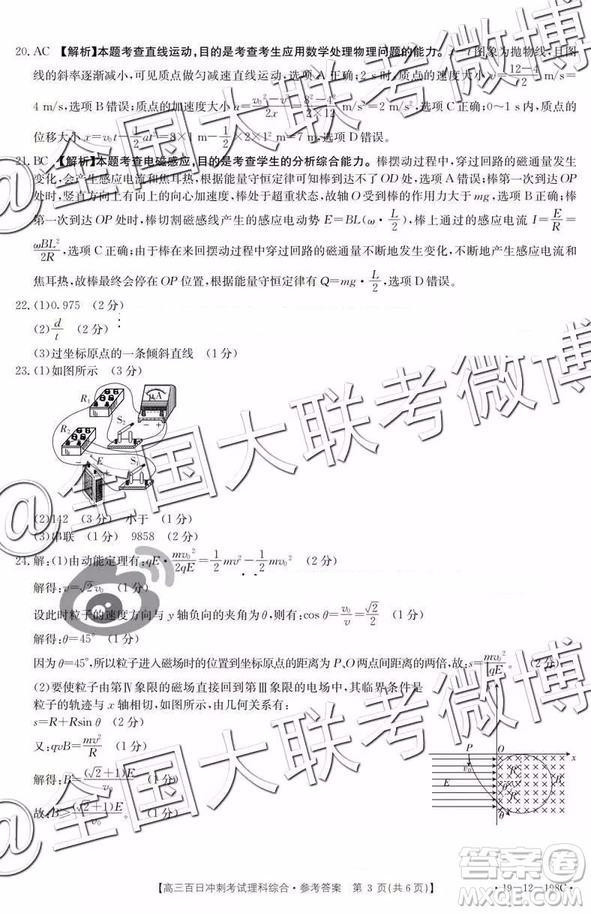 20. AC 【解析】本题考查直线运动,目的是考查考生应用数学处理物理问题的能力。x-t图象为抛物线,且图
线的斜率逐渐减小,可见质点做匀减速直线运动,选项A正确;2 s时,质点的速度大小v=(12-4)/2 m/s=
4 m/s,选项B错误;质点的加速度大小a=
m/s²,选项C正确;0~1 s内,质点
的位移大小x=v₀t-1/2at²=8×1 m-1/2×2×1² m=7 m,选项D错误。
21. BC 【解析】本题考查电磁感应,目的是考查学生的分析综合能力。棒摆动过程中,穿过回路的磁通量发生
变化,会产生感应电流和焦耳热,根据能量守恒定律可知棒到达不了OD处,选项A错误;棒第一次到达OP处
时,竖直方向上有向上的向心加速度,故轴O受到棒的作用力大于mg,选项B正确;棒
第一次到达OP处时,棒切割磁感线产生的感应电动势E=BL(ω·L/2),棒上通过的感应电流I=E/R=
ωBL²/2R,选项C正确;由于棒在来回摆动过程中穿过回路的磁通量不断地发生变化,不断地产生感应电流和
焦耳热,故棒最终会停在OP位置,根据能量守恒定律有Q=mg·L/2,选项D错误。
22. (1)0.975 (2分)
(2)d/t (2分)
(3)过坐标原点的一条倾斜直线 (1分)
23. (1)如图所示 (3分)
R₁
μA
S₂
R₂
E
S₁
(2)142 (3分) 小于 (1分)
(3)串联 (1分) 9858 (2分)
24. 解:(1)由动能定理有:qE·mv₀²/2qE=1/2mv²-1/2mv₀² (2分)
解得:v=√2v₀ (1分)
设此时粒子的速度方向与y轴负向的夹角为θ,则有:cosθ=v₀/v=√2/2 (1分)
解得:θ=45° (1分)
因为θ=45°,所以粒子进入磁场时的位置到坐标原点的距离为P、O两点距离的两倍,故:s=mv₀²/qE。 (1分)
(2)要使粒子由第Ⅳ象限的磁场返回到第Ⅲ象限的电场中,其临界条件是
粒子的轨迹与x轴相切,如图所示,由几何关系有:
s=R+Rsinθ (2分)
又:qvB=mv²/R (1分)
解得:B=(√2+1)E/v₀ (1分)
故B≥(√2+1)E/v₀。 (1分)
P
O
x
v₀
E
R
θ
v
【高三百日冲刺考试理科综合·参考答案 第3页(共6页)】
·19-12-198C·
@全国大联考微博
@全国大联考微博